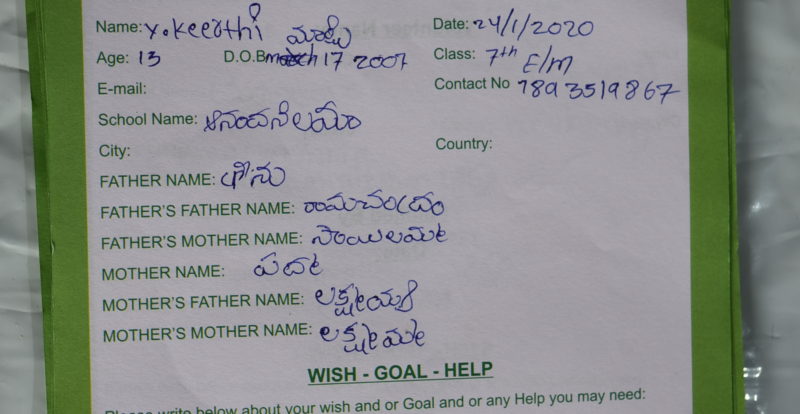 Name: Y. Keerthi Date: 24/1/2020
Age: 13 D.O.B March 17 2007 Class: 7th E/M
E-mail: Contact No 7893519867
School Name:
City: Country:
FATHER NAME: శీను
FATHER'S FATHER NAME: రామచంద్రం
FATHER'S MOTHER NAME: సాయిలమ్మ
MOTHER NAME: పద్మ
MOTHER'S FATHER NAME: లక్ష్మయ్య
MOTHER'S MOTHER NAME: లక్ష్మమ్మ
WISH - GOAL - HELP
Please write below about your wish and or Goal and or any Help you may need: